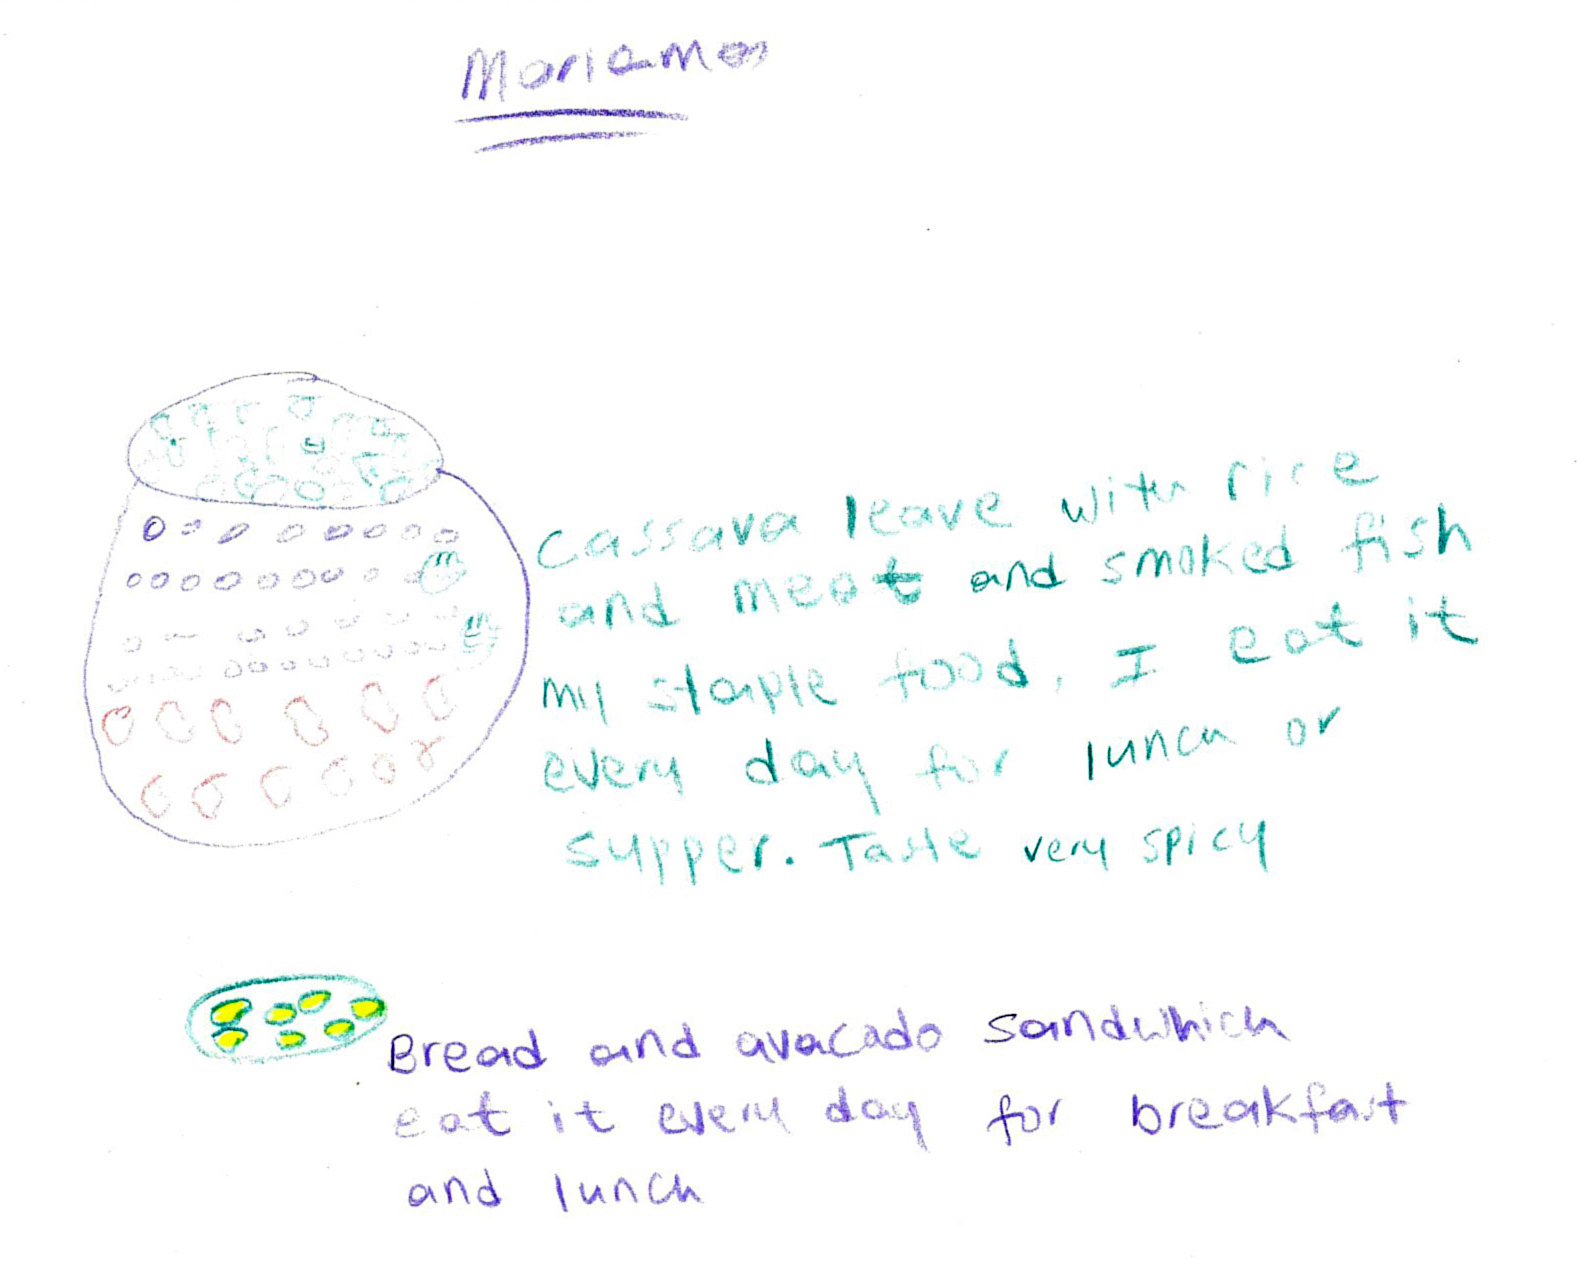 Mariama
cassava leave with rice
and meat and smoked fish
my staple food, I eat it
every day for lunch or
supper. Taste very spicy
Bread and avacado sandwhich
eat it every day for breakfast
and lunch